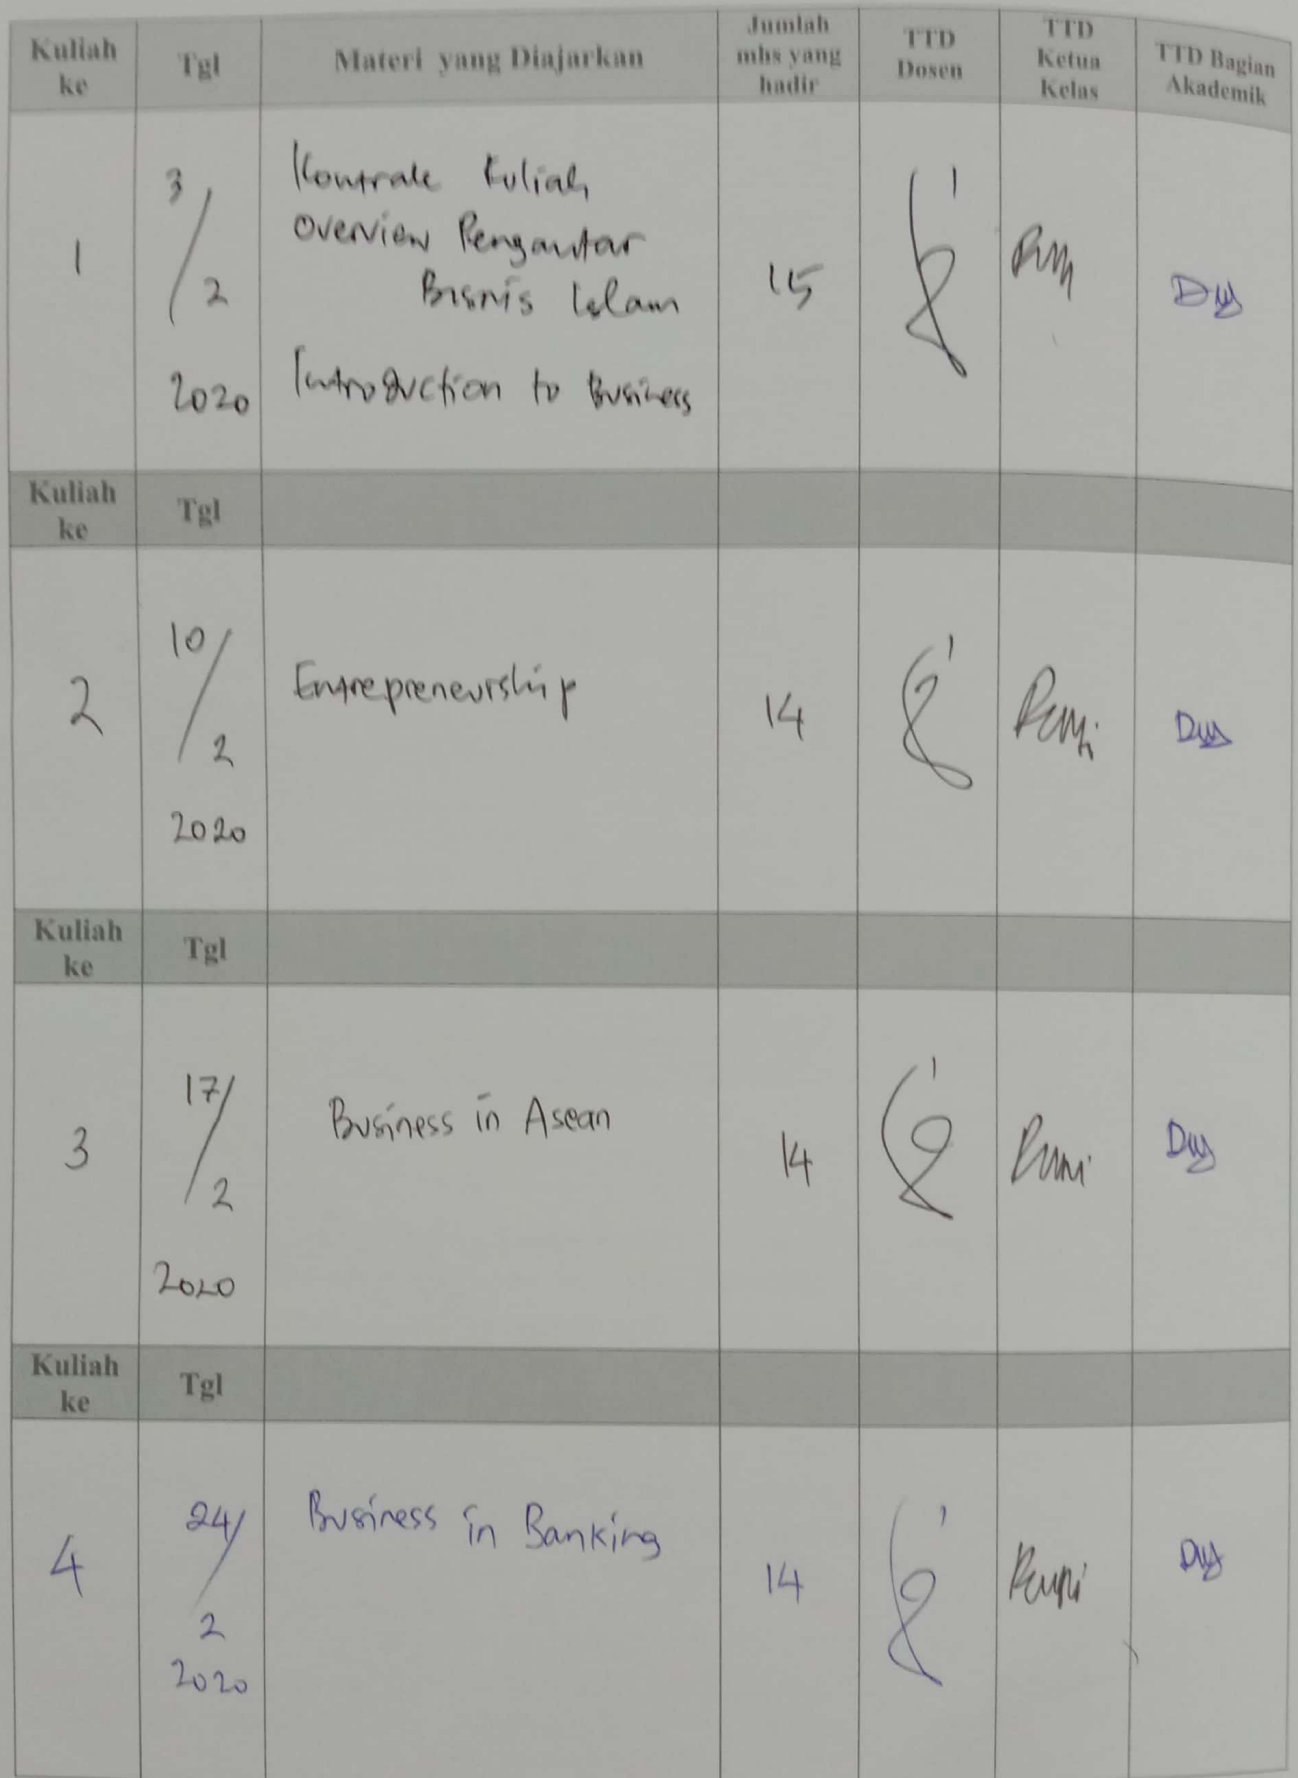 Kuliah ke Tgl Materi yang Diajarkan Jumlah mhs yang hadir TTD Dosen TTD Ketua Kelas TTD Bagian Akademik
1
3/2
2020
Kontrak Kuliah
Overview Pengantar
Bisnis Islam
Introduction to Business
15
Kuliah ke Tgl
2
10/2
2020
Entrepreneurship
14
Kuliah ke Tgl
3
17/2
2020
Business in Asean
14
Kuliah ke Tgl
4
24/2
2020
Business in Banking
14